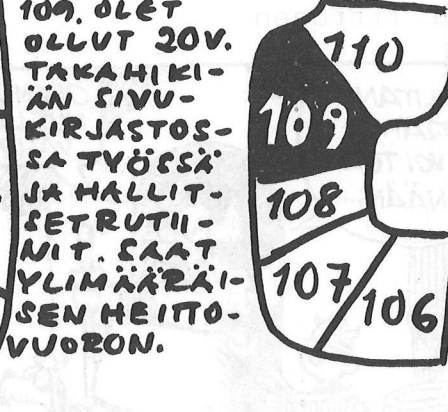 109. OLET
OLLUT 20V.
TAKAHIKI-
ÄN SIVU-
KIRJASTOS-
SA TYÖSSÄ
JA HALLIT-
SET RUTII-
NIT. SAAT
YLIMÄÄRÄI-
SEN HEITTO-
VUORON.
110
109
108
107
106